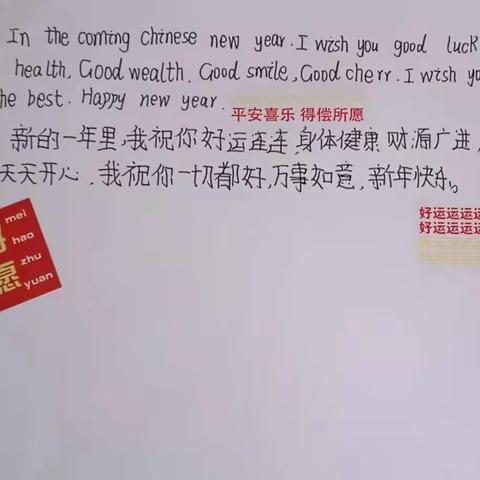 In the coming chinese new year. I wish you good luck
health, Good wealth. Good smile, Good cherr. I wish yo
he best. Happy new year.
平安喜乐 得偿所愿
新的一年里,我祝你好运连连,身体健康 财源广进,
天天开心,我祝你一切都好,万事如意,新年快乐。
好运运运运
好运运运运
mei
hao
zhu
愿 yuan